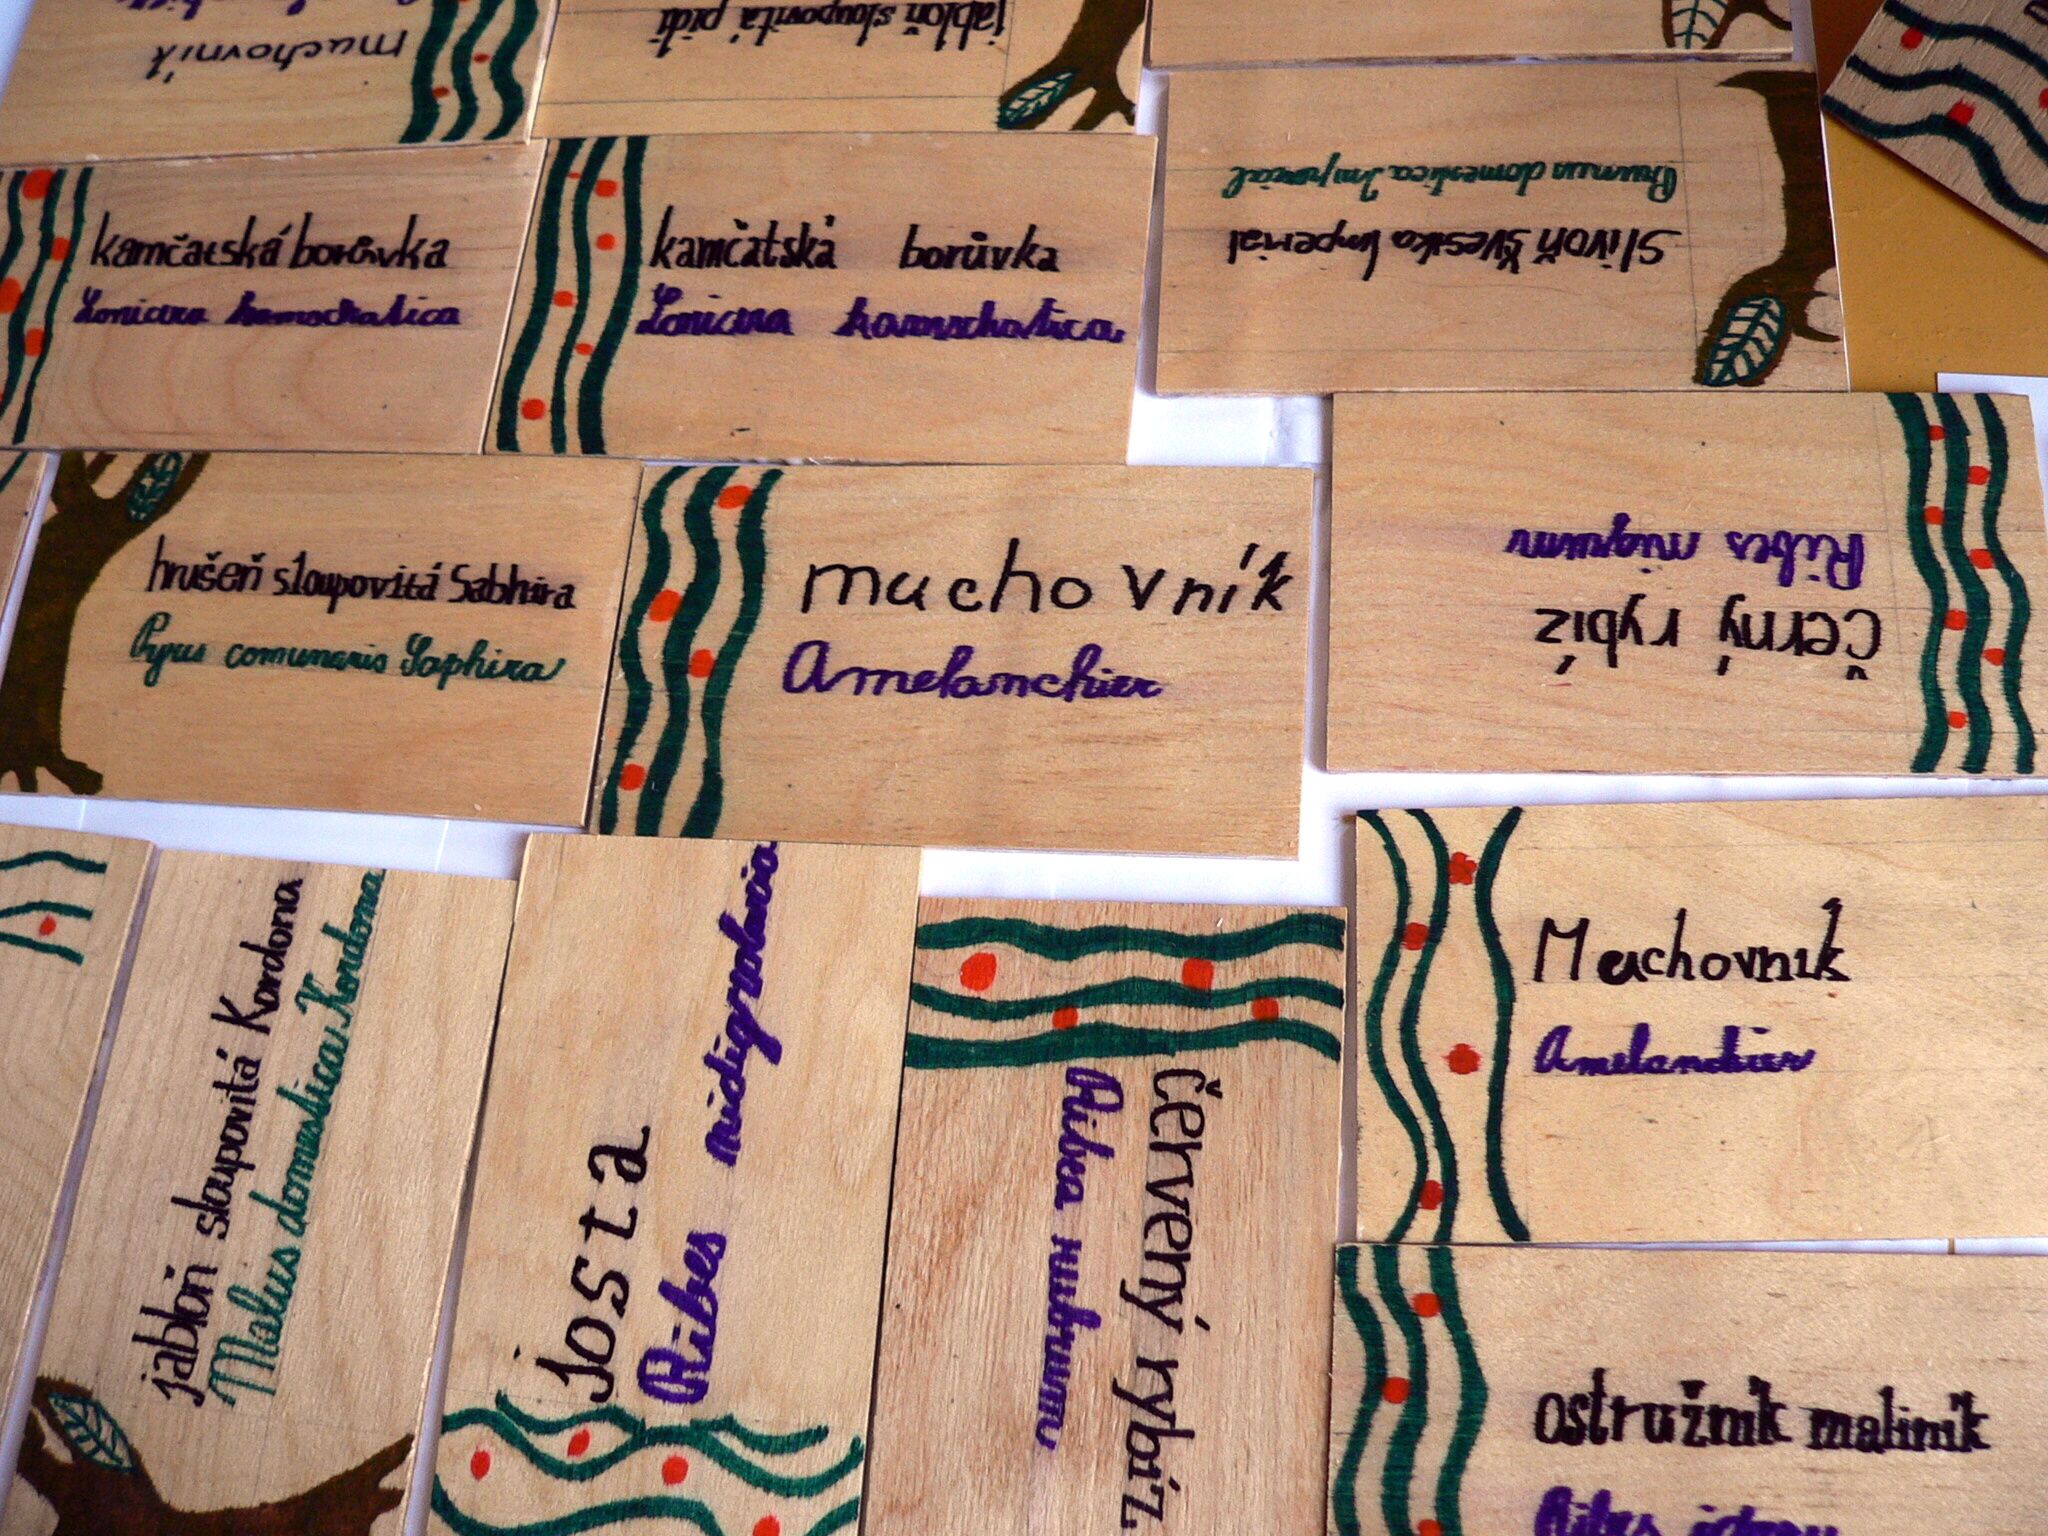 muchovník
jabloň sloupovitá pidi
kamčatská borůvka
Lonicera kamschatica
kamčatská borůvka
Lonicera kamschatica
Slivoň Švestka Imperial
Prunus domestica Imperial
hrušeň sloupovitá Sabhira
Pyrus comunaris Saphira
muchovník
Amelanchier
černý rybíz
Ribes nigrum
jabloň sloupovitá Kordona
Malus domestica Kordona
josta
Ribes nidigrolaria
červený rybíz
Ribes rubrum
Muchovník
Amelanchier
ostružník maliník
Ribes